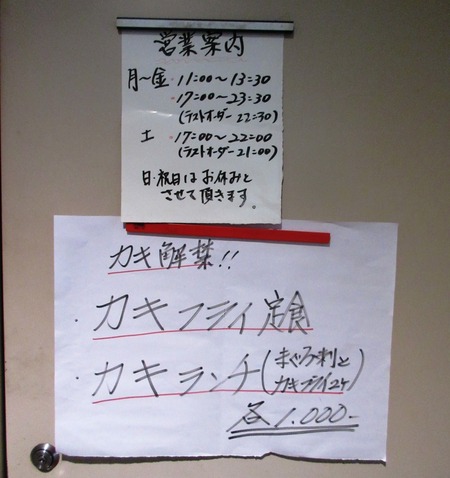 営業案内
月〜金 11:00〜13:30
17:00〜23:30
(ラストオーダー 22:30)
土 17:00〜22:00
(ラストオーダー 21:00)
日・祝日はお休みと
させて頂きます。
カキ解禁!!
・カキフライ定食
・カキランチ(まぐろ刺と
カキフライ2ケ)
各1.000-